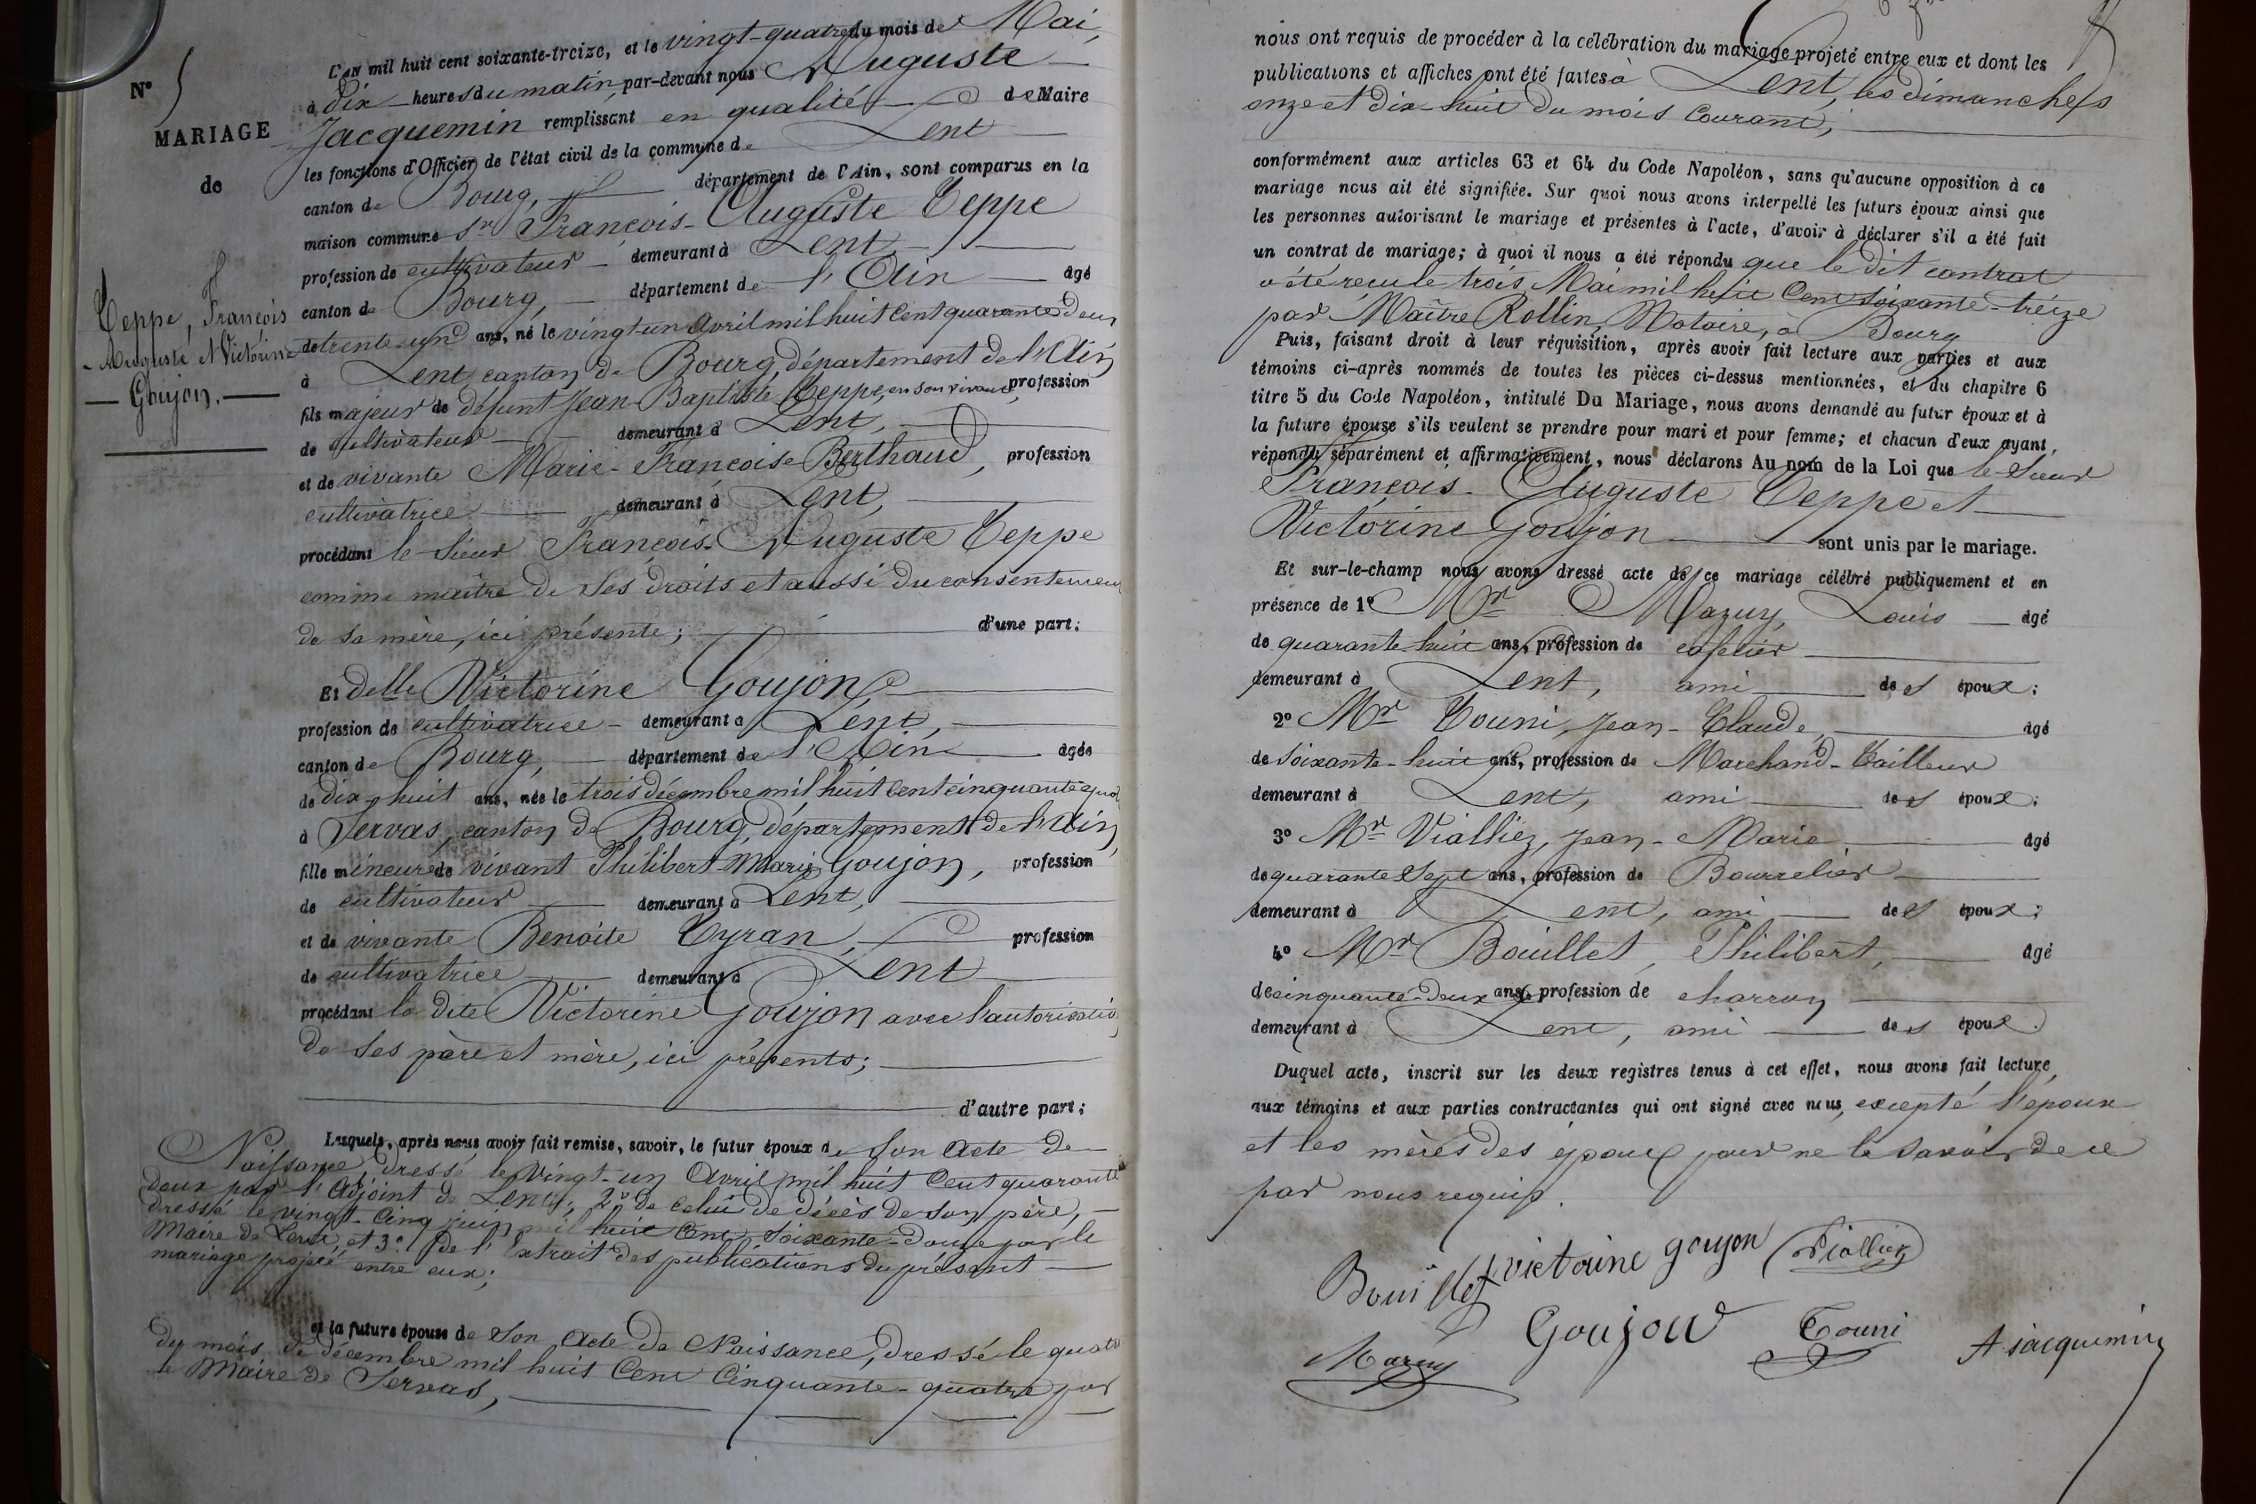 N° 5
MARIAGE
de
Teppe, François
Auguste et Victorine
Goujon.
L'an mil huit cent soixante-treize, et le vingt-quatre du mois de Mai,
à dix heures du matin, par-devant nous Auguste
Jacquemin remplissant en qualité de Maire
les fonctions d'Officier de l'état civil de la commune de Lent
canton de Bourg, département de l'Ain, sont comparus en la
maison commune Sr François-Auguste Teppe
profession de cultivateur demeurant à Lent
canton de Bourg, département de l'Ain âgé
de trente-un ans, né le vingt-un Avril mil huit cent quarante-deux
à Lent, canton de Bourg, département de l'Ain
fils majeur de défunt Jean-Baptiste Teppe, en son vivant, profession
de cultivateur demeurant à Lent,
et de vivante Marie-Françoise Berthaud, profession
cultivatrice demeurant à Lent,
procédant le Sieur François-Auguste Teppe
comme maître de ses droits et aussi du consentement
de sa mère, ici présente; d'une part;
Et delle Victorine Goujon,
profession de cultivatrice demeurant à Lent,
canton de Bourg, département de l'Ain âgée
de dix-huit ans, née le trois décembre mil huit cent cinquante-quat
à Servas, canton de Bourg, département de l'Ain,
fille mineure de vivant Philibert-Marie Goujon, profession
de cultivateur demeurant à Lent,
et de vivante Benoite Tyran, profession
de cultivatrice demeurant à Lent
procédant la dite Victorine Goujon avec l'autorisatio
de ses père et mère, ici présents;
d'autre part;
Lesquels, après nous avoir fait remise, savoir, le futur époux de son acte de
Naissance, dressé le vingt-un Avril mil huit cent quarante
deux par l'Adjoint de Lent; 2° de celui de décès de son père,
dressé le vingt-cinq juin mil huit cent soixante-douze par le
Maire de Lent, et 3° de l'extrait des publications du présent
mariage projeté entre eux;
et la future épouse de son acte de Naissance, dressé le quatre
du mois de décembre mil huit cent cinquante-quatre par
le Maire de Servas,
nous ont requis de procéder à la célébration du mariage projeté entre eux et dont les
publications et affiches ont été faites à Lent, les dimanches
onze et dix-huit du mois courant;
conformément aux articles 63 et 64 du Code Napoléon, sans qu'aucune opposition à ce
mariage nous ait été signifiée. Sur quoi nous avons interpellé les futurs époux ainsi que
les personnes autorisant le mariage et présentes à l'acte, d'avoir à déclarer s'il a été fait
un contrat de mariage; à quoi il nous a été répondu que le dit contrat
a été reçu le trois Mai mil huit cent soixante-treize
par Maître Rollin, Notaire, à Bourg
Puis, faisant droit à leur réquisition, après avoir fait lecture aux parties et aux
témoins ci-après nommés de toutes les pièces ci-dessus mentionnées, et du chapitre 6
titre 5 du Code Napoléon, intitulé Du Mariage, nous avons demandé au futur époux et à
la future épouse s'ils veulent se prendre pour mari et pour femme; et chacun d'eux ayant
répondu séparément et affirmativement, nous déclarons Au nom de la Loi que le Sieur
François-Auguste Teppe et
Victorine Goujon sont unis par le mariage.
Et sur-le-champ nous avons dressé acte de ce mariage célébré publiquement et en
présence de 1° Mr Mazuy, Louis âgé
de quarante-huit ans, profession de cafetier
demeurant à Lent, ami des époux;
2° Mr Touni, Jean-Claude, âgé
de soixante-huit ans, profession de Marchand-Tailleur
demeurant à Lent, ami des époux;
3° Mr Vialliez, Jean-Marie âgé
de quarante-sept ans, profession de Bourrelier
demeurant à Lent, ami des époux;
4° Mr Bouillet, Philibert, âgé
de cinquante-deux ans, profession de charron
demeurant à Lent, ami des époux.
Duquel acte, inscrit sur les deux registres tenus à cet effet, nous avons fait lecture
aux témoins et aux parties contractantes qui ont signé avec nous, excepté l'époux
et les mères des époux pour ne le savoir de ce
par nous requis.
Bouillet victorine goujon Vialliez
Goujon Touni
Mazuy A jacquemin